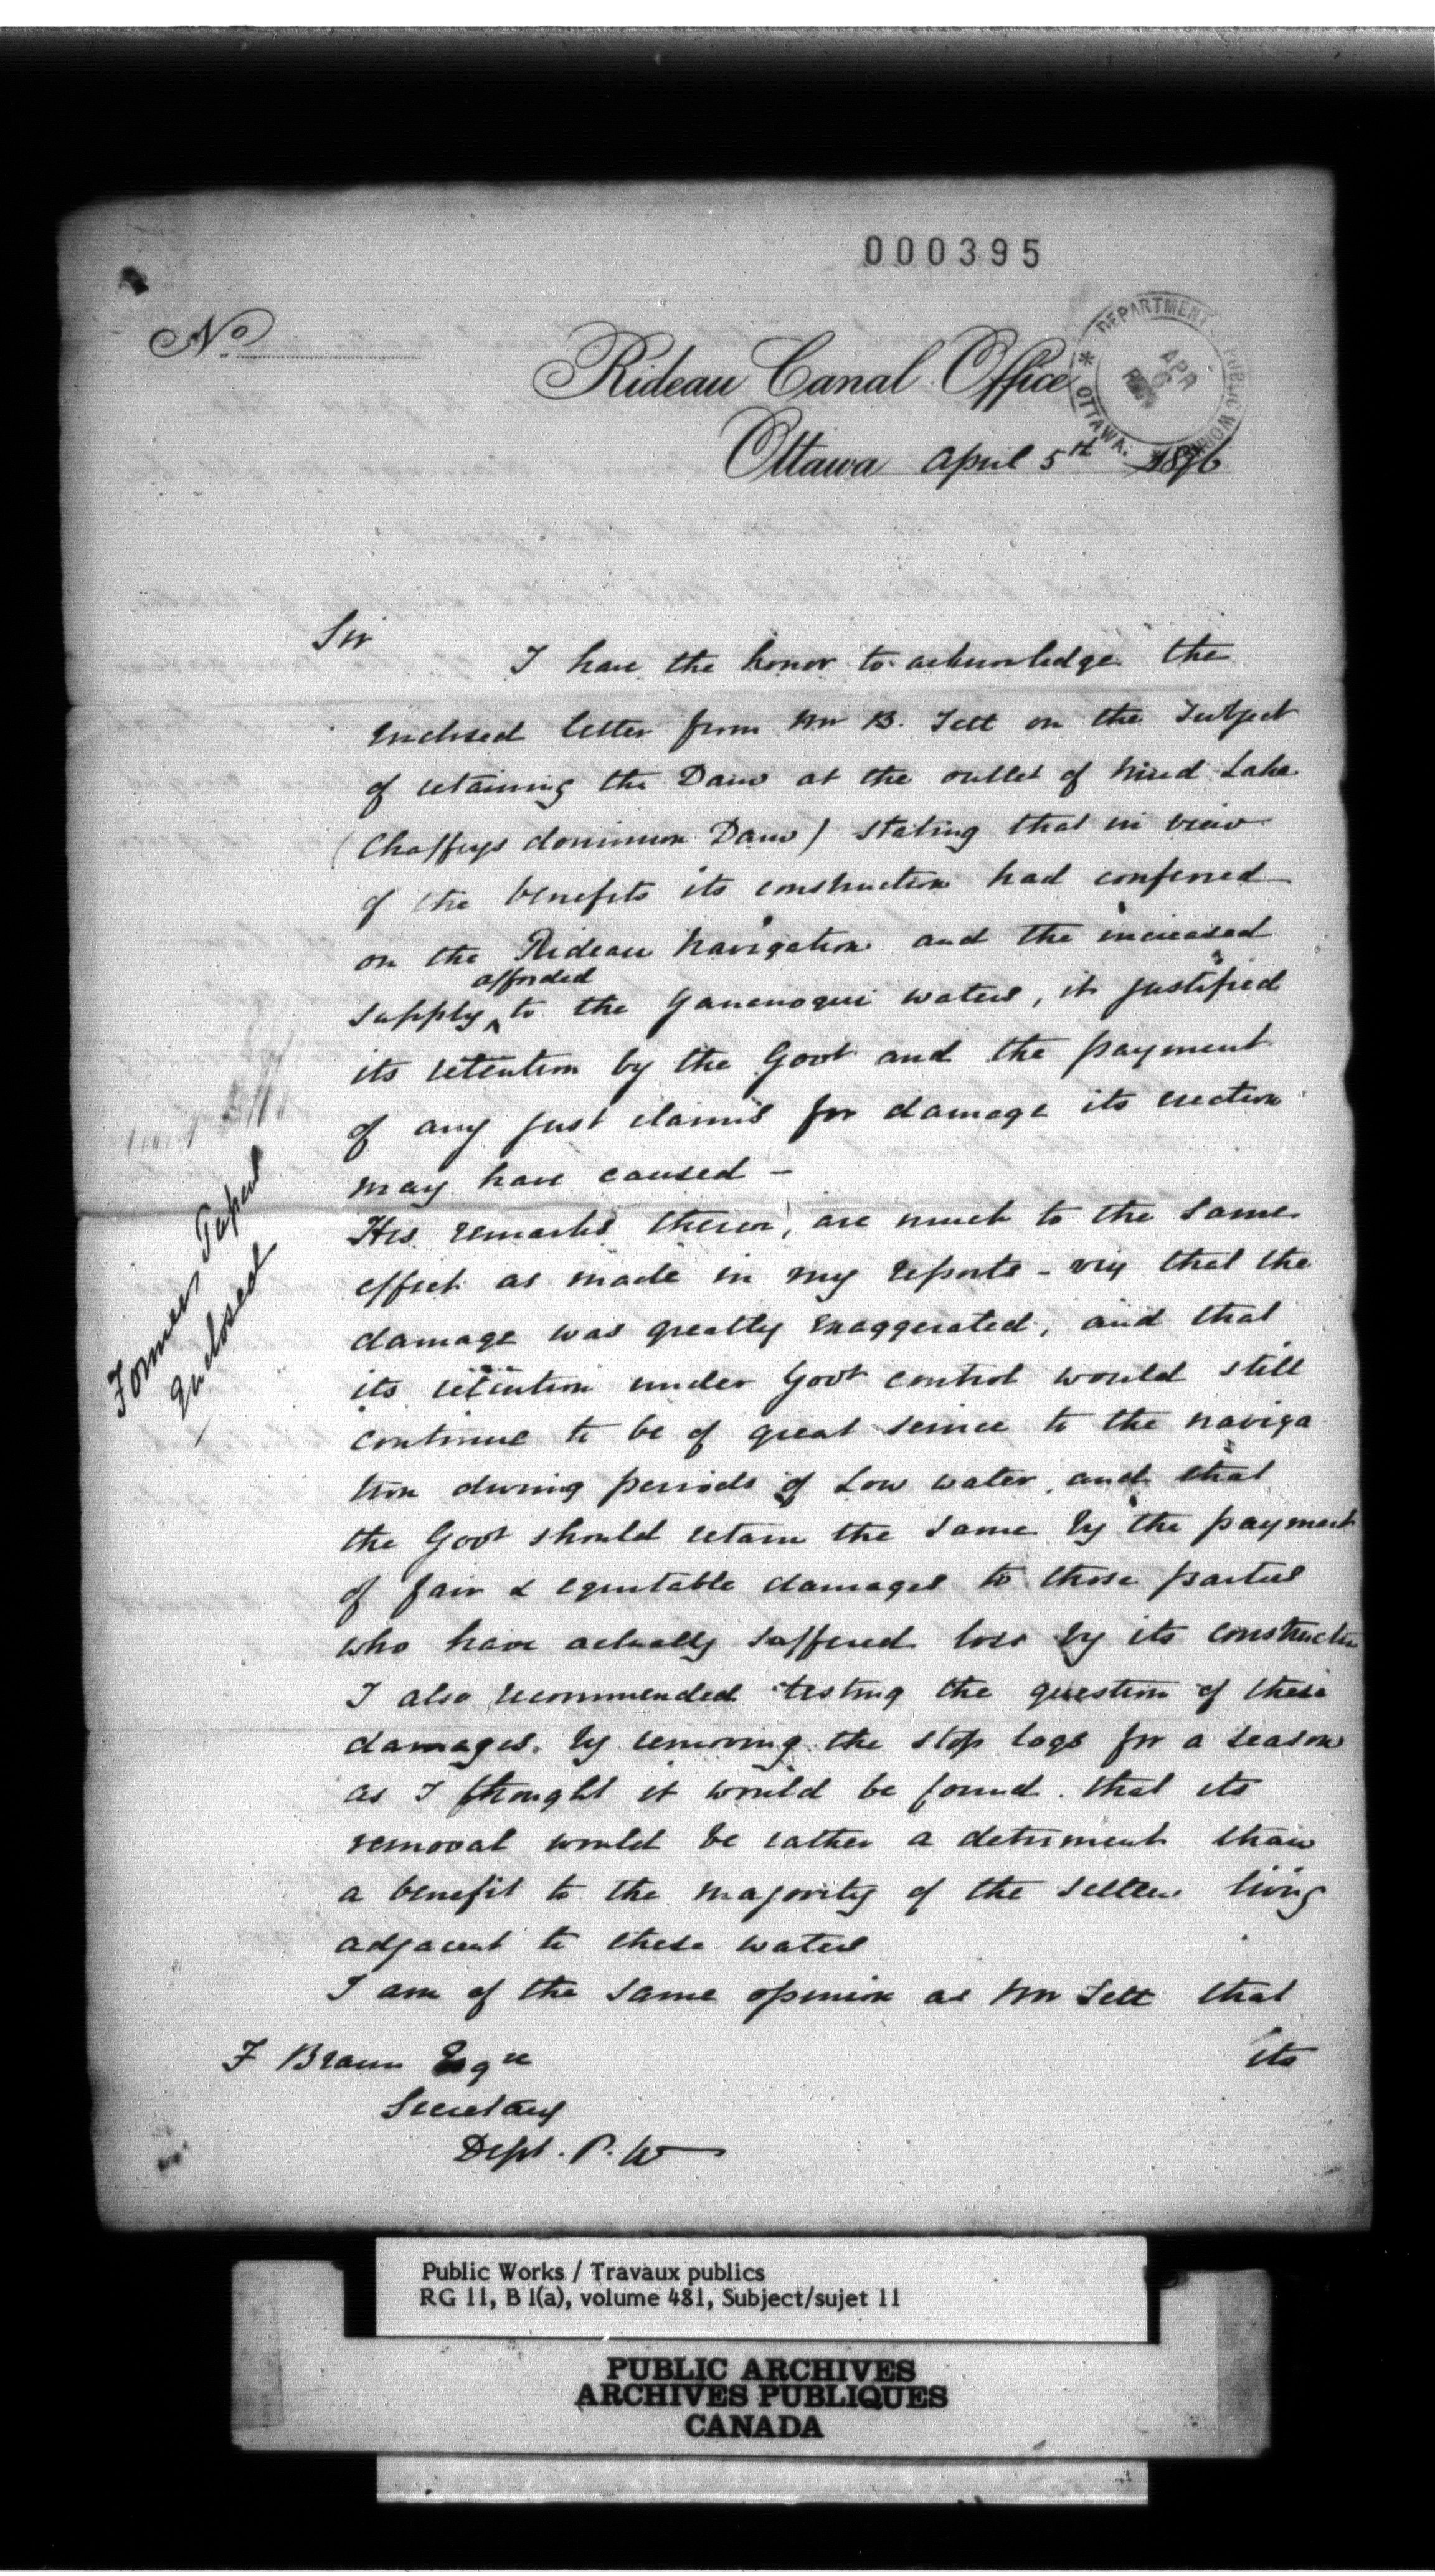 000395
No.
Rideau Canal Office
DEPARTMENT PUBLIC WORKS
APR 6
OTTAWA.
Ottawa April 5th 1876
Sir
I have the honor to acknowledge the
enclosed letter from Mr B. Tett on the Subject
of retaining the Dam at the outlet of Mud Lake
(Chaffeys dominion Dam) stating that in view
of the benefits its construction had conferred
on the Rideau Navigation and the increased
afforded
supply ^ to the Gananoqui waters, it justified
its retention by the Govt and the payment
of any just claims for damage its erection
may have caused —
His remarks therein, are much to the same
effect as made in my reports - viz that the
damage was greatly exaggerated, and that
its retention under Govt control would still
continue to be of great service to the naviga
tion during periods of Low water, and that
the Govt should retain the same by the payment
of fair & equitable damages to those parties
who have actually suffered loss by its construction
I also recommended testing the question of these
damages, by removing the stop logs for a season
as I thought it would be found that its
removal would be rather a detriment than
a benefit to the majority of the settlers living
adjacent to these waters
I am of the same opinion as Mr Tett that
its
F Braun Esqre
Secretary
Dept. P. W
Former Papers
Enclosed
Public Works / Travaux publics
RG 11, B 1(a), volume 481, Subject/sujet 11
PUBLIC ARCHIVES
ARCHIVES PUBLIQUES
CANADA